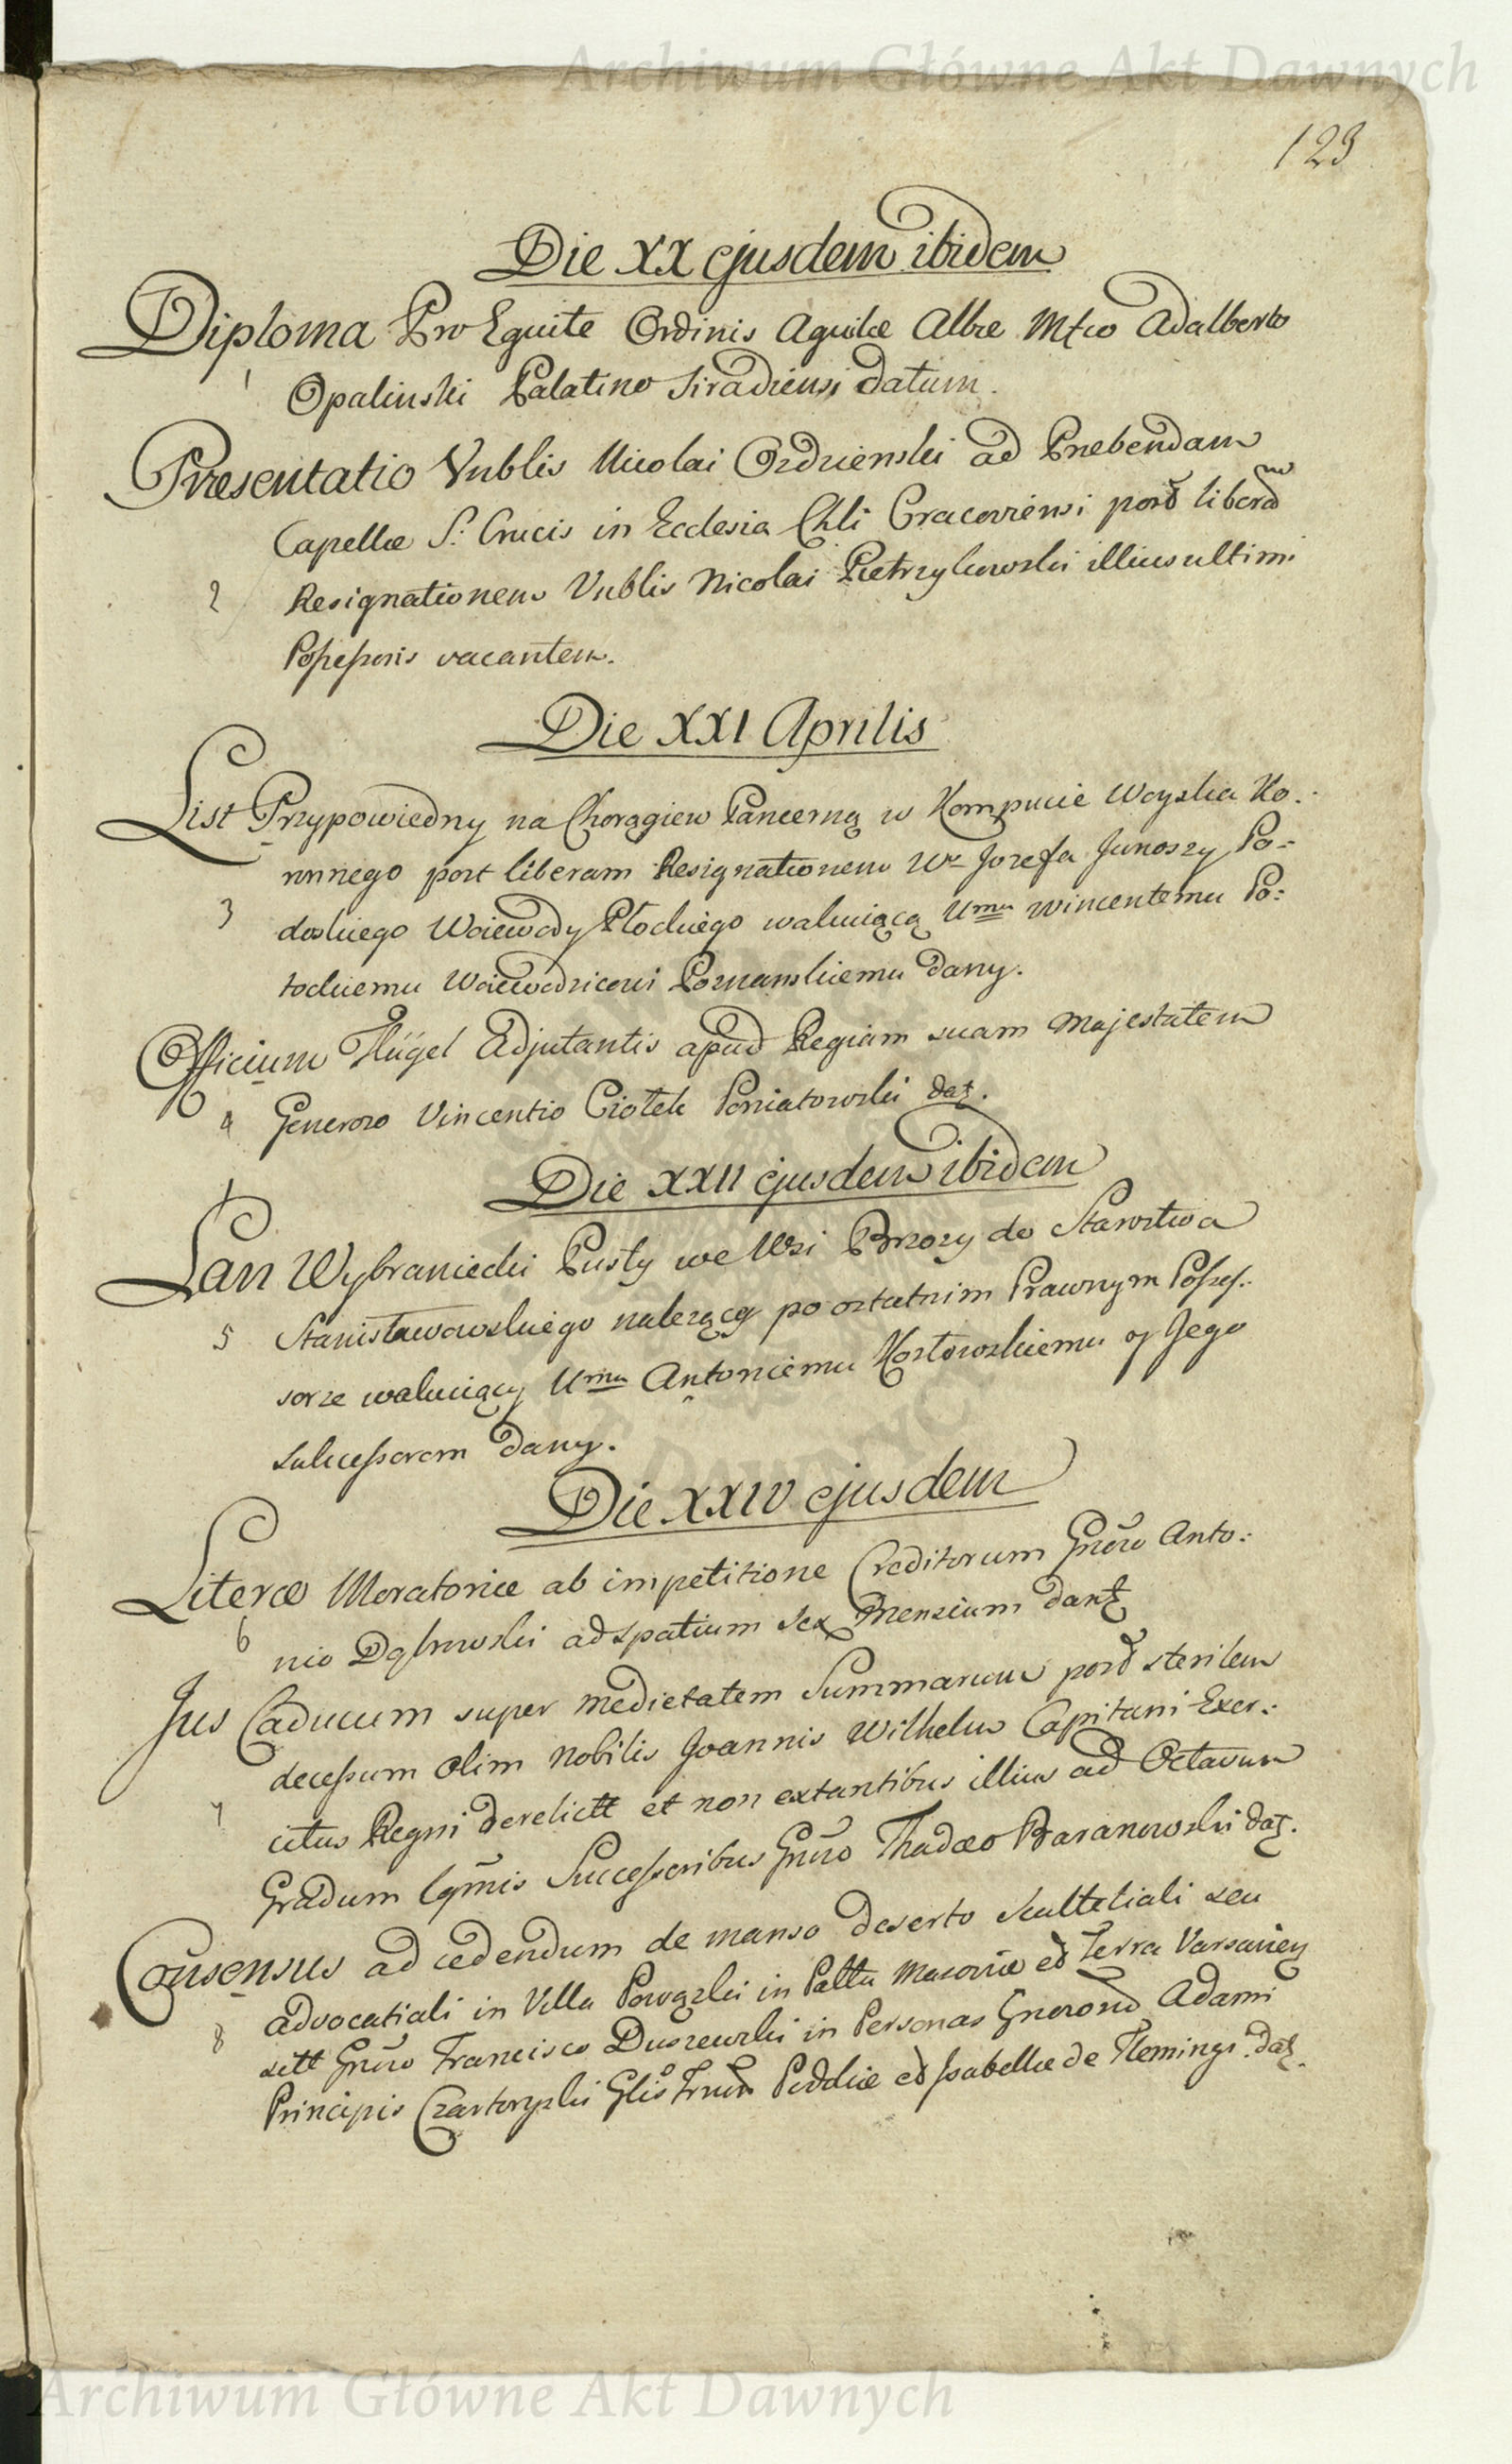 Archiwum Główne Akt Dawnych
123
Die XX ejusdem ibidem
Diploma Pro Equite Ordinis Aquilæ Albæ Mfco Adalberto
1
Opalinski Palatino Siradiensi datum.
Præsentatio Vnblis Nicolai Ozdzienski ad Præbendam
Capellæ S. Crucis in Ecclesia Chli Cracoviensi post liberam
2
Resignationem Vnblis Nicolai Pietrzykowski illius ultimi
Possessoris vacantem.
Die XXI Aprilis
List Przypowiedny na Chorągiew Pancerną w Kompucie Woyska Ko:
ronnego post liberam Resignationem Wo Jozefa Junoszy Po=
3
doskiego Woiewody Płockiego wakuiącą Umu Wincentemu Po:
tockiemu Woiewodzicowi Poznanskiemu dany.
Officium Flügel Adjutantis apud Regiam suam Majestatem
4
Generoso Vincentio Ciołek Poniatowski dat.
Die XXII ejusdem ibidem
Łan Wybraniecki Pusty we Wsi Brzozy do Starostwa
5
Stanisławowskiego należący po ostatnim Prawnym Posses:
sorze wakuiący Umu Antoniemu Kozłowskiemu y Jego
sukcessorom dany.
Die XXIV ejusdem
Literæ Moratoriæ ab impetitione Creditorum Gnõro Anto:
6
nio Dąbrowski ad spatium sex Mensium dant
Jus Caducum super medietatem Summarum post sterilem
decessum olim Nobilis Joannis Wilhelm Capitani Exer:
7
citus Regni derelictt et non extantibus illius ad Octavum
Gradum lgmis Successoribus Gnõro Thadæo Baranowski dat.
Consensus ad cedendum de manso deserto scultetiali seu
advocatiali in Villa Powązki in Palttu Masoviæ et Terra Varsavien
8
sitt Gnõro Francisco Duszewski in Personas Gnorond Adami
Principis Czartoryski Glis Podoliæ et Isabellæ de Flemingi dat.
Archiwum Główne Akt Dawnych